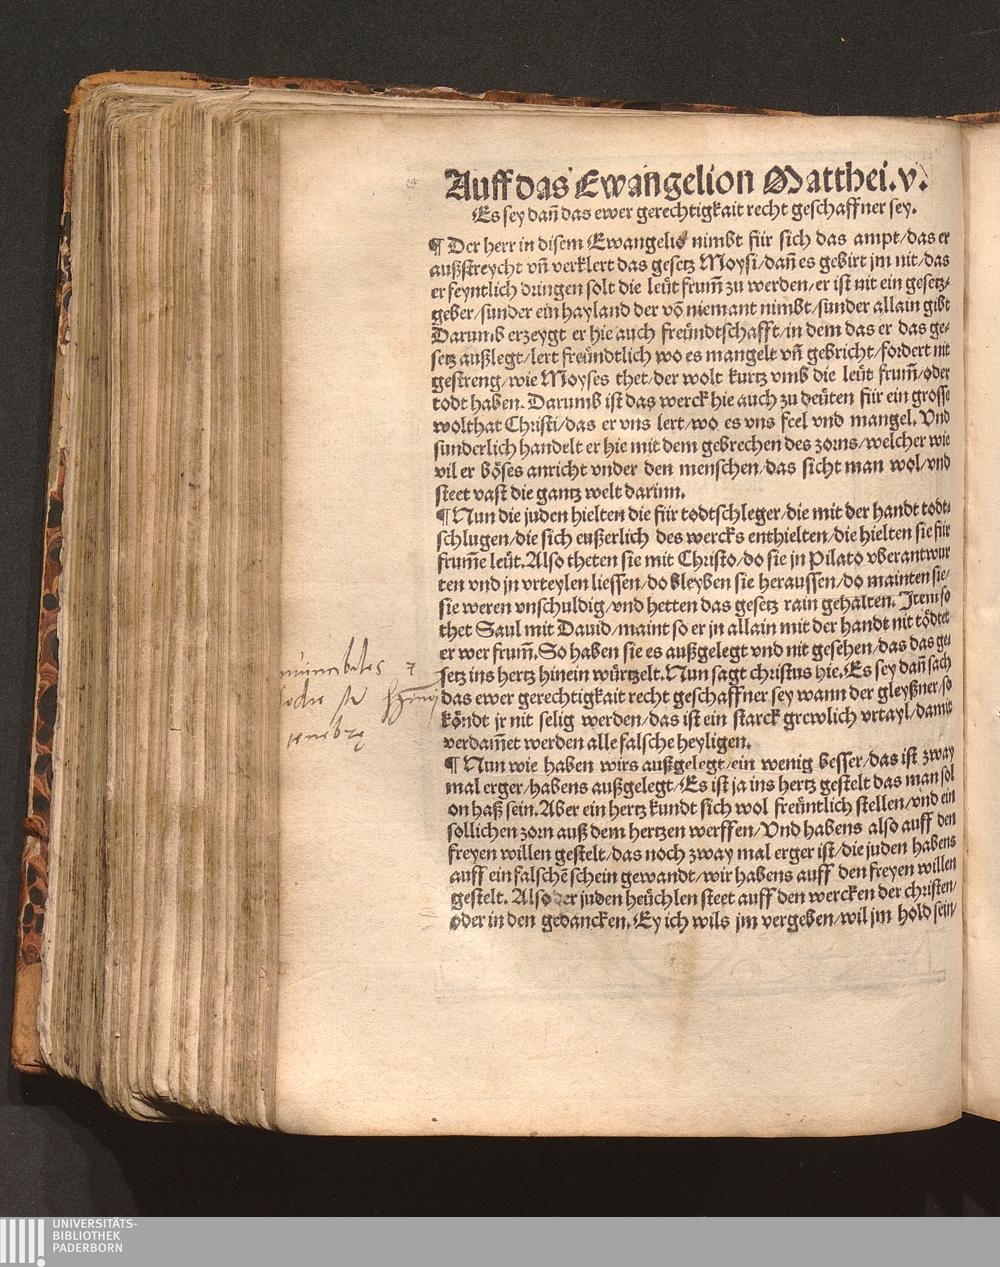 Auff das Ewangelion Matthei.v.
Es sey dañ das ewer gerechtigkait recht geschaffner sey.
¶ Der herr in disem Ewangelio nimbt für sich das ampt/das er
außstreycht vñ verklert das gesetz Moysi/dañ es gebirt jm nit/das
er feyntlich dringen solt die leüt frum̃ zu werden/er ist nit ein gesetz-
geber/sunder ein hayland der võ niemant nimbt/sunder allain gibt
Darumb erzeygt er hie auch freündtschafft/in dem das er das ge-
setz außlegt/lert freündtlich wo es mangelt vñ gebricht/fordert nit
gestreng/wie Moyses thet/der wolt kurtz vmb die leüt frum̃/oder
todt haben. Darumb ist das werck hie auch zu deüten für ein grosse
wolthat Christi/das er vns lert/wo es vns feel vnd mangel. Vnd
sunderlich handelt er hie mit dem gebrechen des zorns/welcher wie
vil er böses anricht vnder den menschen/das sicht man wol/vnd
steet vast die gantz welt darinn.
¶ Nun die juden hielten die für todtschleger/die mit der handt todt-
schlugen/die sich eußerlich des wercks enthielten/die hielten sie für
frum̃e leüt. Also theten sie mit Christo/do sie jn Pilato vberantwur
ten vnd jn vrteylen liessen/do bleyben sie heraussen/do mainten sie/
sie weren vnschuldig/vnd hetten das gesetz rain gehalten. Item so
thet Saul mit Dauid/maint so er jn allain mit der handt nit tödtet
er wer frum̃. So haben sie es außgelegt vnd nit gesehen/das das ge-
setz ins hertz hinein würtzelt. Nun sagt christus hie. Es sey dañ sach
das ewer gerechtigkait recht geschaffner sey wann der gleyßner/so
köndt jr nit selig werden/das ist ein starck grewlich vrtayl/damit
verdam̃et werden alle falsche heyligen.
¶ Nun wie haben wirs außgelegt/ein wenig besser/das ist zway
mal erger/habens außgelegt/Es ist ja ins hertz gestelt das man sol
on haß sein. Aber ein hertz kundt sich wol freüntlich stellen/vnd ein
sollichen zorn auß dem hertzen werffen/Vnd habens also auff den
freyen willen gestelt/das noch zway mal erger ist/die juden habens
auff ein falschẽ schein gewandt/wir habens auff den freyen willen
gestelt. Also der juden heüchlen steet auff den wercken der christen/
oder in den gedancken. Ey ich wils jm vergeben/wil jm hold sein/
UNIVERSITÄTS-
BIBLIOTHEK
PADERBORN